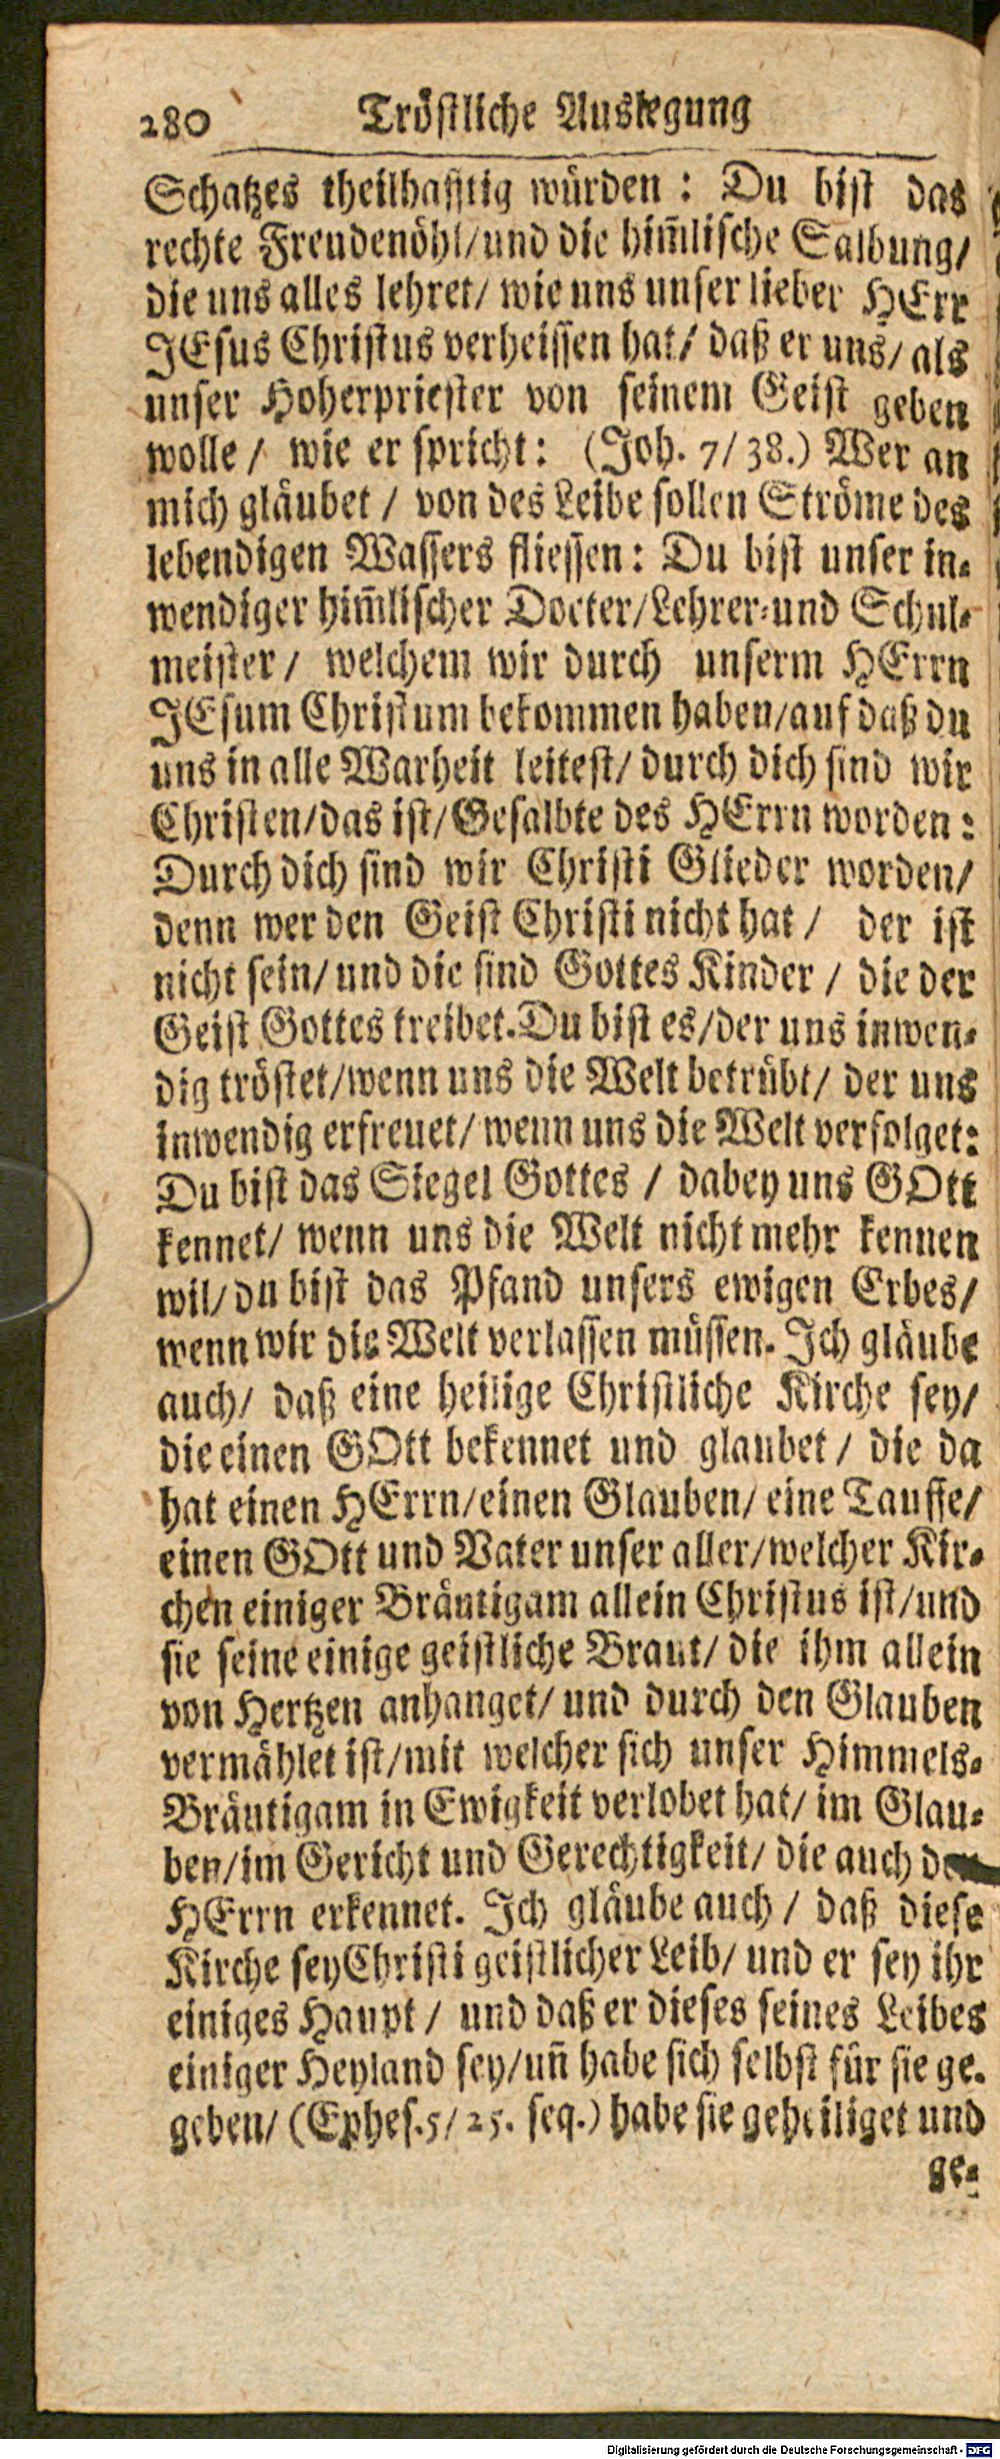 280 Tröstliche Auslegung
Schatzes theilhafftig würden : Du bist das
rechte Freudenöhl/und die him̃lische Salbung/
die uns alles lehret/ wie uns unser lieber HErr
JEsus Christus verheissen hat/ daß er uns/ als
unser Hoherpriester von seinem Geist geben
wolle / wie er spricht: (Joh. 7/38.) Wer an
mich gläubet / von des Leibe sollen Ströme des
lebendigen Wassers fliessen: Du bist unser in-
wendiger him̃lischer Docter/Lehrer-und Schul-
meister / welchem wir durch unserm HErrn
JEsum Christum bekommen haben/auf daß du
uns in alle Warheit leitest/ durch dich sind wir
Christen/das ist/Gesalbte des HErrn worden:
Durch dich sind wir Christi Glieder worden/
denn wer den Geist Christi nicht hat / der ist
nicht sein/ und die sind Gottes Kinder / die der
Geist Gottes treibet. Du bist es/der uns inwen-
dig tröstet/wenn uns die Welt betrübt/ der uns
inwendig erfreuet/ wenn uns die Welt verfolget:
Du bist das Siegel Gottes / dabey uns GOtt
kennet/ wenn uns die Welt nicht mehr kennen
wil/ du bist das Pfand unsers ewigen Erbes/
wenn wir die Welt verlassen müssen. Ich gläube
auch/ daß eine heilige Christliche Kirche sey/
die einen GOtt bekennet und glaubet / die da
hat einen HErrn/einen Glauben/ eine Tauffe/
einen GOtt und Vater unser aller/welcher Kir-
chen einiger Bräutigam allein Christus ist/und
sie seine einige geistliche Braut/ die ihm allein
von Hertzen anhanget/ und durch den Glauben
vermählet ist/mit welcher sich unser Himmels-
Bräutigam in Ewigkeit verlobet hat/ im Glau-
ben/im Gericht und Gerechtigkeit/ die auch den
HErrn erkennet. Ich gläube auch / daß diese
Kirche sey Christi geistlicher Leib/ und er sey ihr
einiges Haupt / und daß er dieses seines Leibes
einiger Heyland sey/uñ habe sich selbst für sie ge-
geben/ (Ephes.5/25. seq.) habe sie geheiliget und
ge-
Digitalisierung gefördert durch die Deutsche Forschungsgemeinschaft - DFG